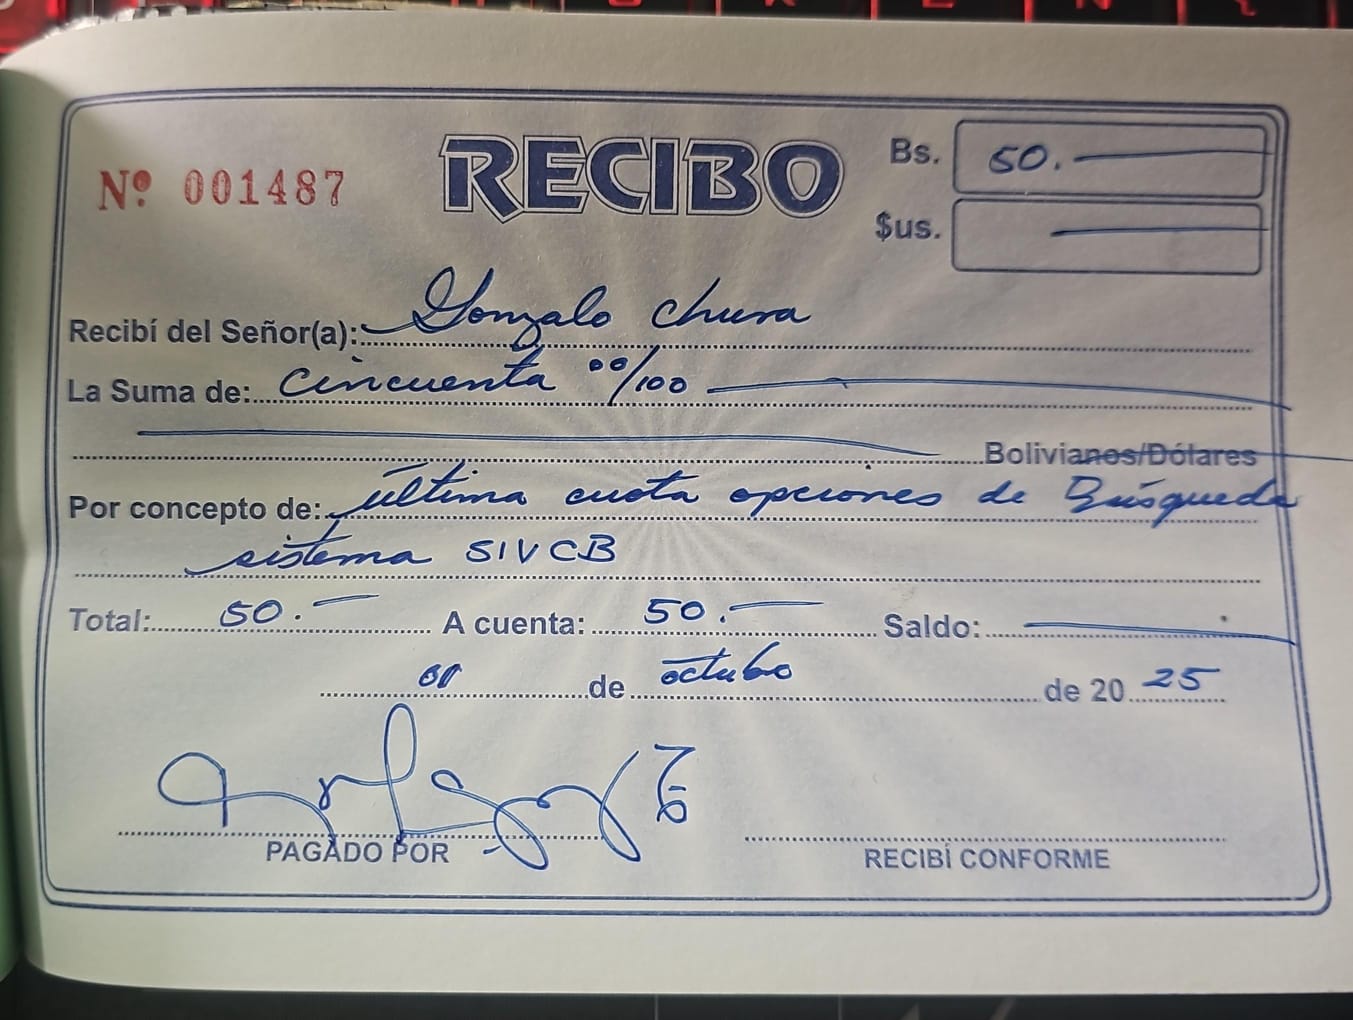 Nº 001487
RECIBO
Bs. 50.
$us.
Recibí del Señor(a): Gonzalo Chura
La Suma de: Cincuenta 00/100
Bolivianos/Dólares
Por concepto de: última cuota opciones de Búsqueda
sistema SIVCB
Total: 50. A cuenta: 50. Saldo:
de octubre de 20 25
PAGADO POR
RECIBÍ CONFORME